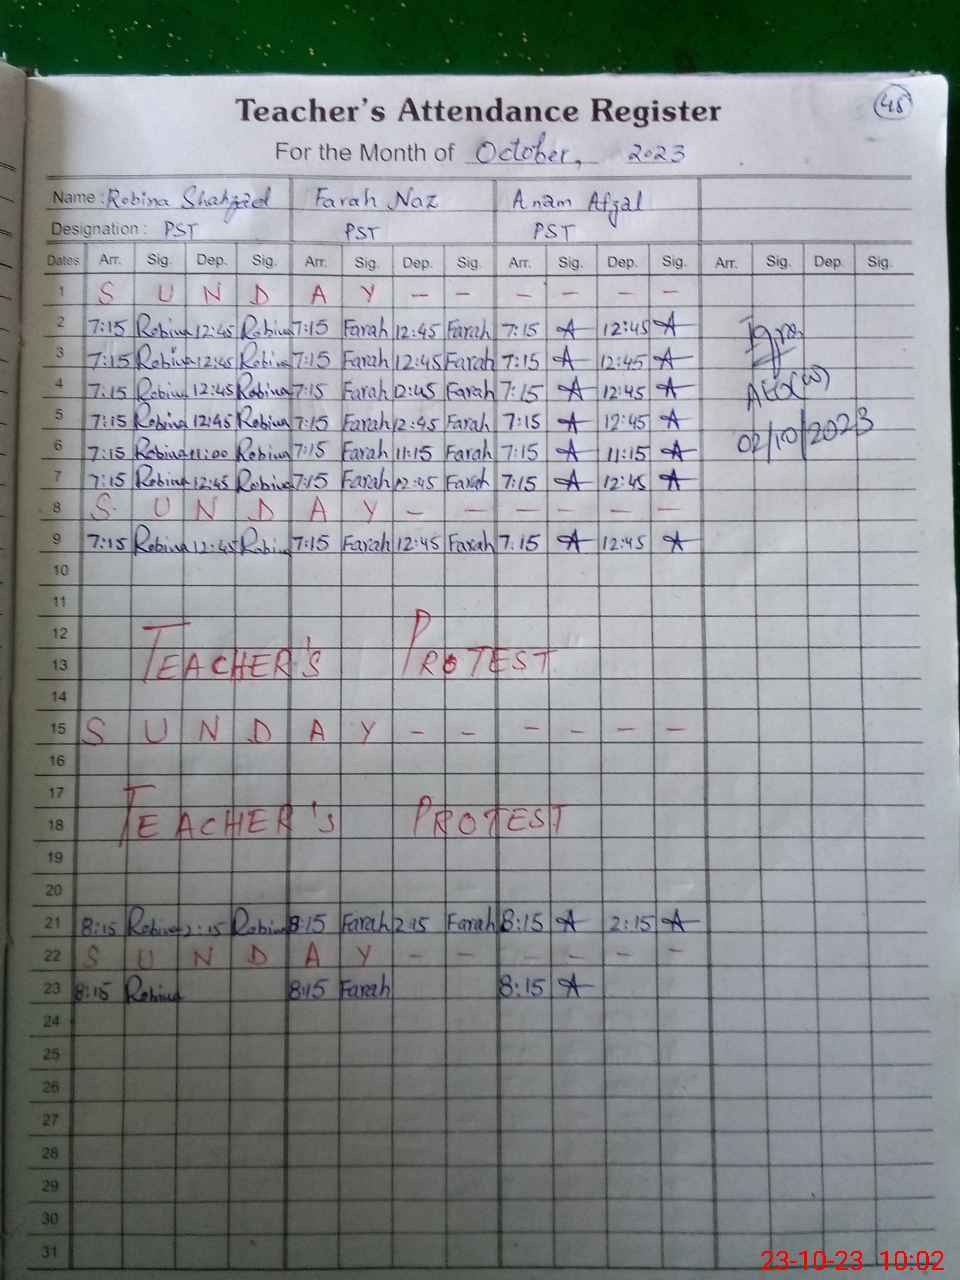 45
Teacher's Attendance Register
For the Month of October, 2023
Name : Robina Shahzad Farah Naz Anam Afzal
Designation : PST PST PST
Dates Arr. Sig. Dep. Sig. Arr. Sig. Dep. Sig. Arr. Sig. Dep. Sig. Arr. Sig. Dep. Sig.
1 S U N D A Y - - - - - -
2 7:15 Robina 12:45 Robina 7:15 Farah 12:45 Farah 7:15 A 12:45 A
3 7:15 Robina 12:45 Robina 7:15 Farah 12:45 Farah 7:15 A 12:45 A
4 7:15 Robina 12:45 Robina 7:15 Farah 12:45 Farah 7:15 A 12:45 A
AEO(W)
5 7:15 Robina 12:45 Robina 7:15 Farah 12:45 Farah 7:15 A 12:45 A
02/10/2023
6 7:15 Robina 11:00 Robina 7:15 Farah 11:15 Farah 7:15 A 11:15 A
7 7:15 Robina 12:45 Robina 7:15 Farah 12:45 Farah 7:15 A 12:45 A
8 S U N D A Y - - - - - -
9 7:15 Robina 12:45 Robina 7:15 Farah 12:45 Farah 7:15 A 12:45 A
10
11
12
13 TEACHER'S PROTEST
14
15 S U N D A Y - - - - - -
16
17
18 TEACHER'S PROTEST
19
20
21 8:15 Robina 2:15 Robina 8:15 Farah 2:15 Farah 8:15 A 2:15 A
22 S U N D A Y - - - - - -
23 8:15 Robina 8:15 Farah 8:15 A
24
25
26
27
28
29
30
31
23-10-23 10:02